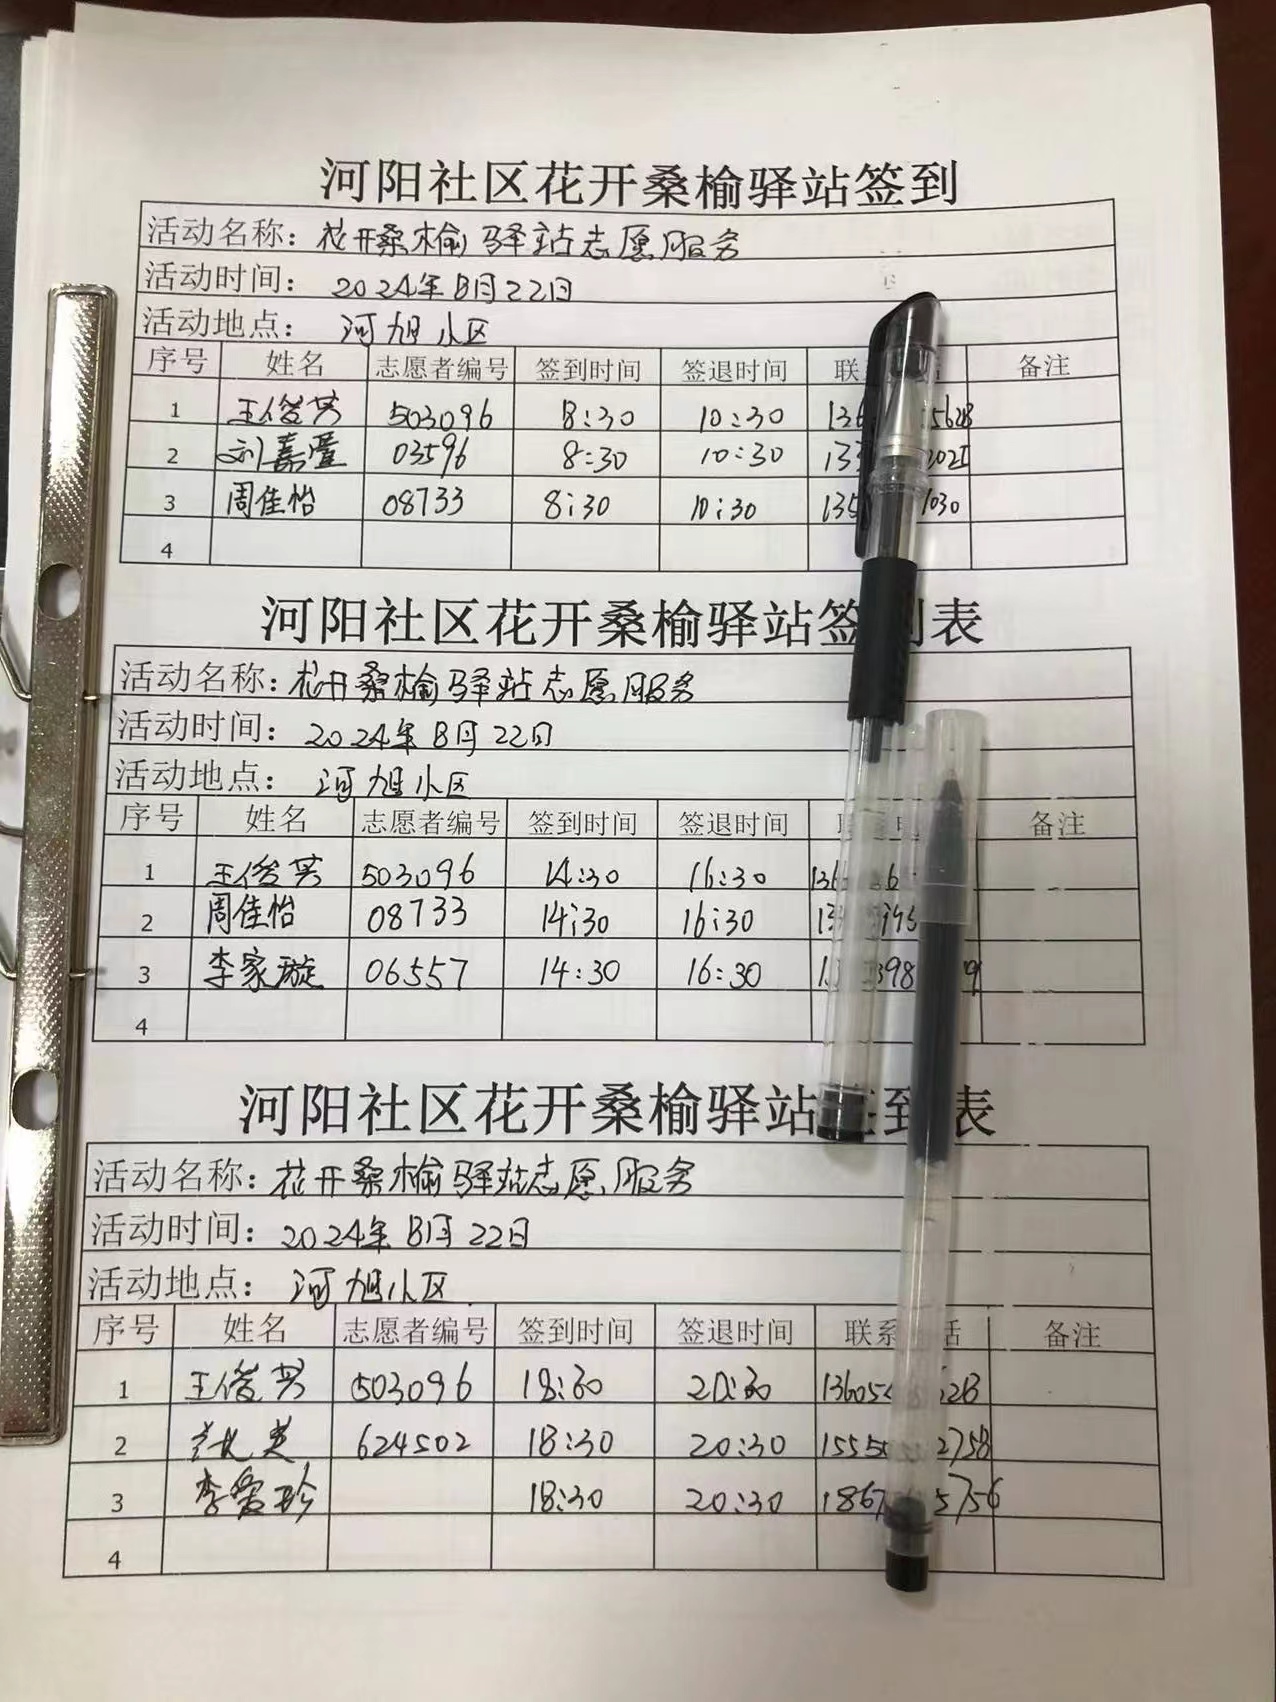 河阳社区花开桑榆驿站签到
活动名称：花开桑榆驿站志愿服务
活动时间：2024年8月22日
活动地点：河旭小区
序号 姓名 志愿者编号 签到时间 签退时间 联 话 备注
1 王俊英 503096 8:30 10:30 136 5628
2 刘嘉萱 03596 8:30 10:30 133 2021
3 周佳怡 08733 8:30 10:30 135 1030
4
河阳社区花开桑榆驿站签到表
活动名称：花开桑榆驿站志愿服务
活动时间：2024年8月22日
活动地点：河旭小区
序号 姓名 志愿者编号 签到时间 签退时间 备注
1 王俊英 503096 14:30 16:30 136
2 周佳怡 08733 14:30 16:30 13
3 李家璇 06557 14:30 16:30 1 398 9
4
河阳社区花开桑榆驿站签到表
活动名称：花开桑榆驿站志愿服务
活动时间：2024年8月22日
活动地点：河旭小区
序号 姓名 志愿者编号 签到时间 签退时间 联系 话 备注
1 王俊英 503096 18:30 20:30 13605 628
2 624502 18:30 20:30 1555 2758
3 李爱珍 18:30 20:30 1867 5756
4